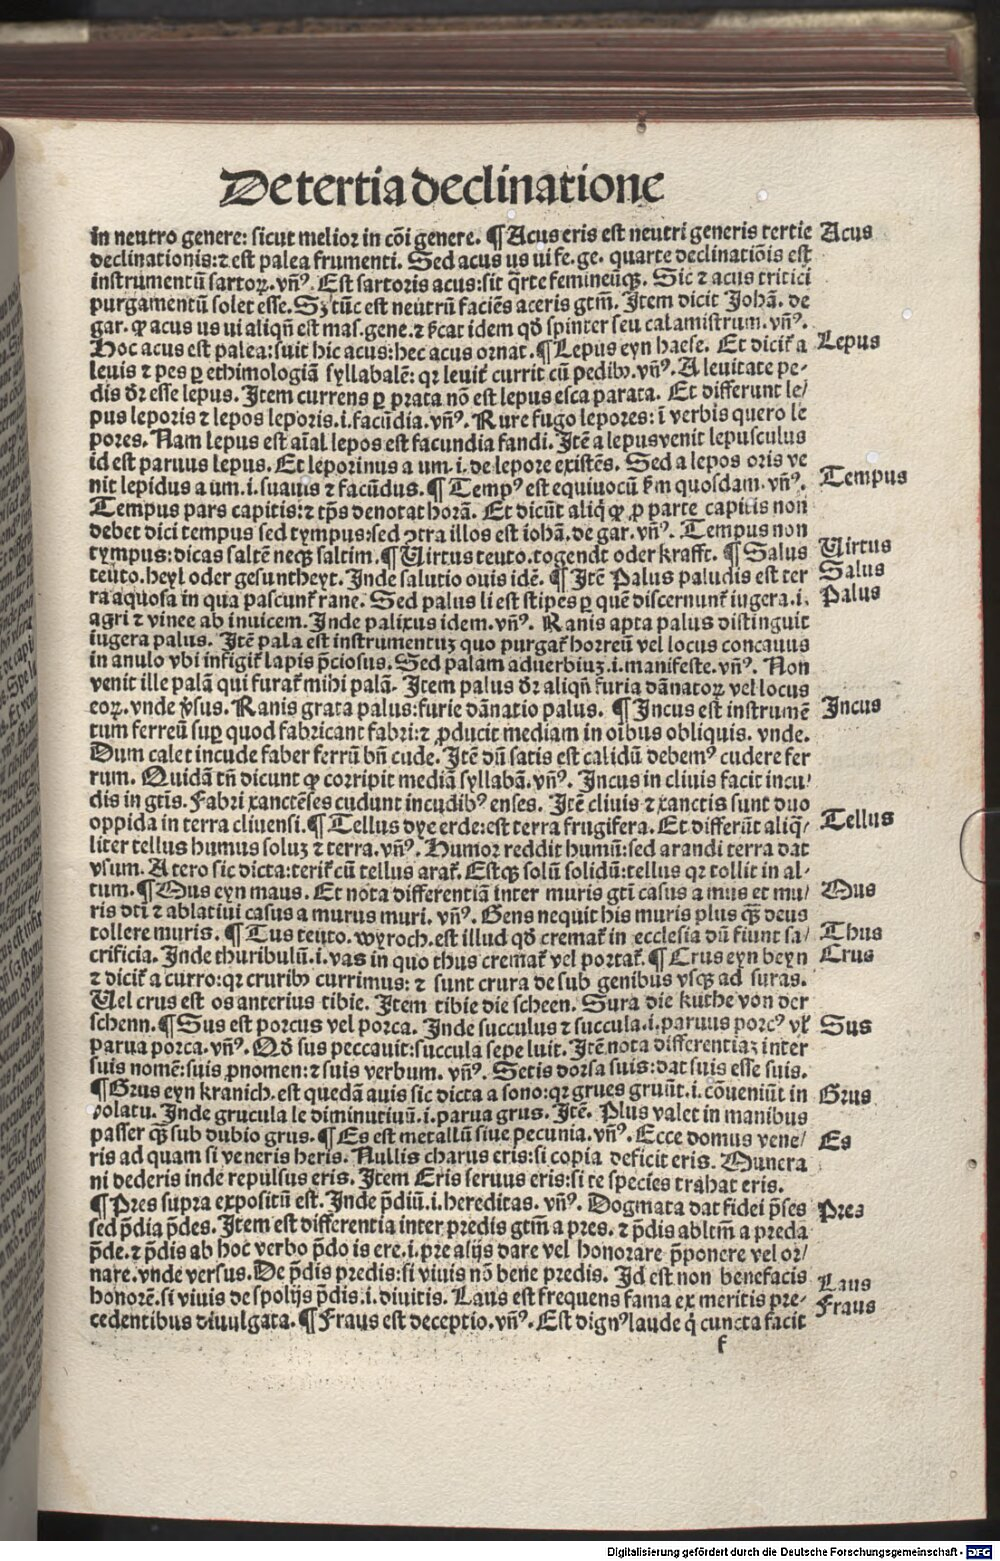 De tertia declinatione
in neutro genere: sicut melior in cõi genere. ¶ Acus eris est neutri generis tertie Acus
declinationis: ⁊ est palea frumenti. Sed acus us ui fe. ge. quarte declinatiõis est
instrumentũ sartoꝝ. vñꝰ. Est sartoris acus: sit q̃rte femineũqꝫ. Sic ⁊ acus tritici
purgamentũ solet esse. Sꝫ tũc est neutrũ faciẽs aceris gtm̃. Item dicit Johã. de
gar. ꝙ acus us ui aliqñ est mas. gene. ⁊ sc̃at idem qd̃ spinter seu calamistrum. vñꝰ.
Hoc acus est palea: suit hic acus: hec acus ornat. ¶ Lepus eyn haese. Et dicit̃ a Lepus
leuis ⁊ pes ꝑ ethimologiã syllabalẽ: qꝛ leuit̃ currit cũ pedibꝫ. vñꝰ. A leuitate pe-
dis dr̃ esse lepus. Item currens ꝑ prata nõ est lepus esca parata. Et differunt le/
pus leporis ⁊ lepos leporis .i. facũdia. vñꝰ. Rure fugo lepores: ĩ verbis quero le
pores. Nam lepus est aĩal lepos est facundia fandi. Itẽ a lepus venit lepusculus
id est paruus lepus. Et leporinus a um .i. de lepore existẽs. Sed a lepos oris ve
nit lepidus a um .i. suauis ⁊ facũdus. ¶ Tempꝰ est equiuocũ s̃m quosdam. vñꝰ. Tempus
Tempus pars capitis: ⁊ tp̃s denotat horã. Et dicũt aliq̃ ꝙ ꝓ parte capitis non
debet dici tempus sed tympus: sed ꝯtra illos est iohã. de gar. vñꝰ. Tempus non
tympus: dicas saltẽ neqꝫ saltim. ¶ Uirtus teuto. togendt oder krafft. ¶ Salus Uirtus
teuto. heyl oder gesuntheyt. Inde salutio ouis idẽ. ¶ Itẽ Palus paludis est ter Salus
ra aquosa in qua pascunt̃ rane. Sed palus li est stipes ꝑ quẽ discernunt̃ iugera .i. Palus
agri ⁊ vinee ab inuicem. Inde palixus idem. vñꝰ. Ranis apta palus distinguit
iugera palus. Itẽ pala est instrumentuꝫ quo purgat̃ horreũ vel locus concauus
in anulo vbi infigit̃ lapis p̃ciosus. Sed palam aduerbiuꝫ .i. manifeste. vñꝰ. Non
venit ille palã qui furat̃ mihi palã. Item palus dr̃ aliqñ furia dãnatoꝝ vel locus
eoꝝ. vnde ṽsus. Ranis grata palus: furie dãnatio palus. ¶ Incus est instrumẽ Incus
tum ferreũ suꝑ quod fabricant fabri: ⁊ ꝓducit mediam in oibus obliquis. vnde.
Dum calet incude faber ferrũ bñ cude. Itẽ dũ satis est calidũ debemꝰ cudere fer
rum. Quidã tñ dicunt ꝙ corripit mediã syllabã. vñꝰ. Incus in cliuis facit incu/
dis in gtĩs. Fabri xanctẽses cudunt incudibꝰ enses. Itẽ cliuis ⁊ xanctis sunt duo
oppida in terra cliuensi. ¶ Tellus dye erde: est terra frugifera. Et differũt aliq̃/ Tellus
liter tellus humus soluꝫ ⁊ terra. vñꝰ. Humor reddit humũ: sed arandi terra dat
vsum. A tero sic dicta: terit̃ cũ tellus arat̃. Estqꝫ solũ solidũ: tellus qꝛ tollit in al-
tum. ¶ Mus eyn maus. Et nota differentiã inter muris gtĩ casus a mus et mu/ Mus
ris dtĩ ⁊ ablatiui casus a murus muri. vñꝰ. Gens nequit his muris plus q̃ꝫ deus
tollere muris. ¶ Tus teuto. wyroch. est illud qd̃ cremat̃ in ecclesia dũ fiunt sa/ Thus
crificia. Inde thuribulũ .i. vas in quo thus cremat̃ vel portat̃. ¶ Crus eyn beyn Crus
⁊ dicit̃ a curro: qꝛ cruribꝫ currimus: ⁊ sunt crura de sub genibus vsqꝫ ad suras.
Uel crus est os anterius tibie. Item tibie die scheen. Sura die kuthe von der
schenn. ¶ Sus est porcus vel porca. Inde succulus ⁊ succula .i. paruus porcꝰ vl̃ Sus
parua porca. vñꝰ. Qd̃ sus peccauit: succula sepe luit. Itẽ nota differentiaꝫ inter
suis nomẽ: suis ꝓnomen: ⁊ suis verbum. vñꝰ. Setis dorsa suis: dat suis esse suis.
¶ Grus eyn kranich. est quedã auis sic dicta a sono: qꝛ grues gruũt .i. cõueniũt in Grus
volatu. Inde grucula le diminutiuũ .i. parua grus. Itẽ. Plus valet in manibus
passer q̃ꝫ sub dubio grus. ¶ Es est metallũ siue pecunia. vñꝰ. Ecce domus vene/ Es
ris ad quam si veneris heris. Nullis charus eris: si copia deficit eris. Munera
ni dederis inde repulsus eris. Item Eris seruus eris: si te species trahat eris.
¶ Pres supra expositũ est. Inde p̃diũ .i. hereditas. vñꝰ. Dogmata dat fidei p̃ses Pres
sed p̃dia p̃des. Item est differentia inter predis gtm̃ a pres. ⁊ p̃dis abltm̃ a preda
p̃de. ⁊ p̃dis ab hoc verbo p̃do is ere .i. pre alijs dare vel honorare p̃ponere vel or/
nare. vnde versus. De p̃dis predis: si viuis nõ bene predis. Id est non benefacis Laus
honorẽ. si viuis de spolijs p̃dis .i. diuitis. Laus est frequens fama ex meritis pre- Fraus
cedentibus diuulgata. ¶ Fraus est deceptio. vñꝰ. Est dignꝰ laude q̃ cuncta facit
f
Digitalisierung gefördert durch die Deutsche Forschungsgemeinschaft - DFG